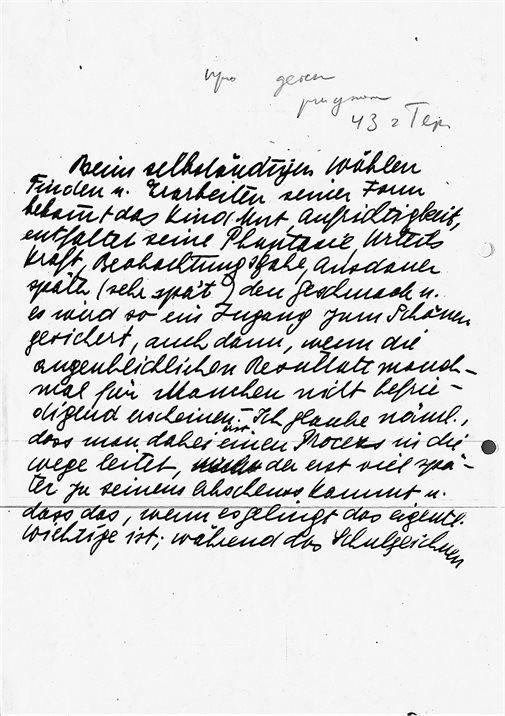 43 г Тер
Beim selbständigen Wählen
Finden u. Erarbeiten seiner Form
bekommt das Kind Mut, Aufrichtigkeit,
entfaltet seine Phantasie, Urteils
kraft, Beobachtungsgabe, Ausdauer
später (sehr spät!) den Geschmack u.
es wird so ein Zugang zum Schönen
gesichert, auch dann, wenn die
augenblicklichen Resultate manch-
mal für Manchen nicht befrie-
digend erscheinen. – Ich glaube näml.,
dass man dabei einen Process in die
wege leitet, der erst viel spä-
ter zu seinem Abschluss kommt u.
dass das, wenn es gelingt das eigentl.
wichtige ist; während das Schulzeichnen